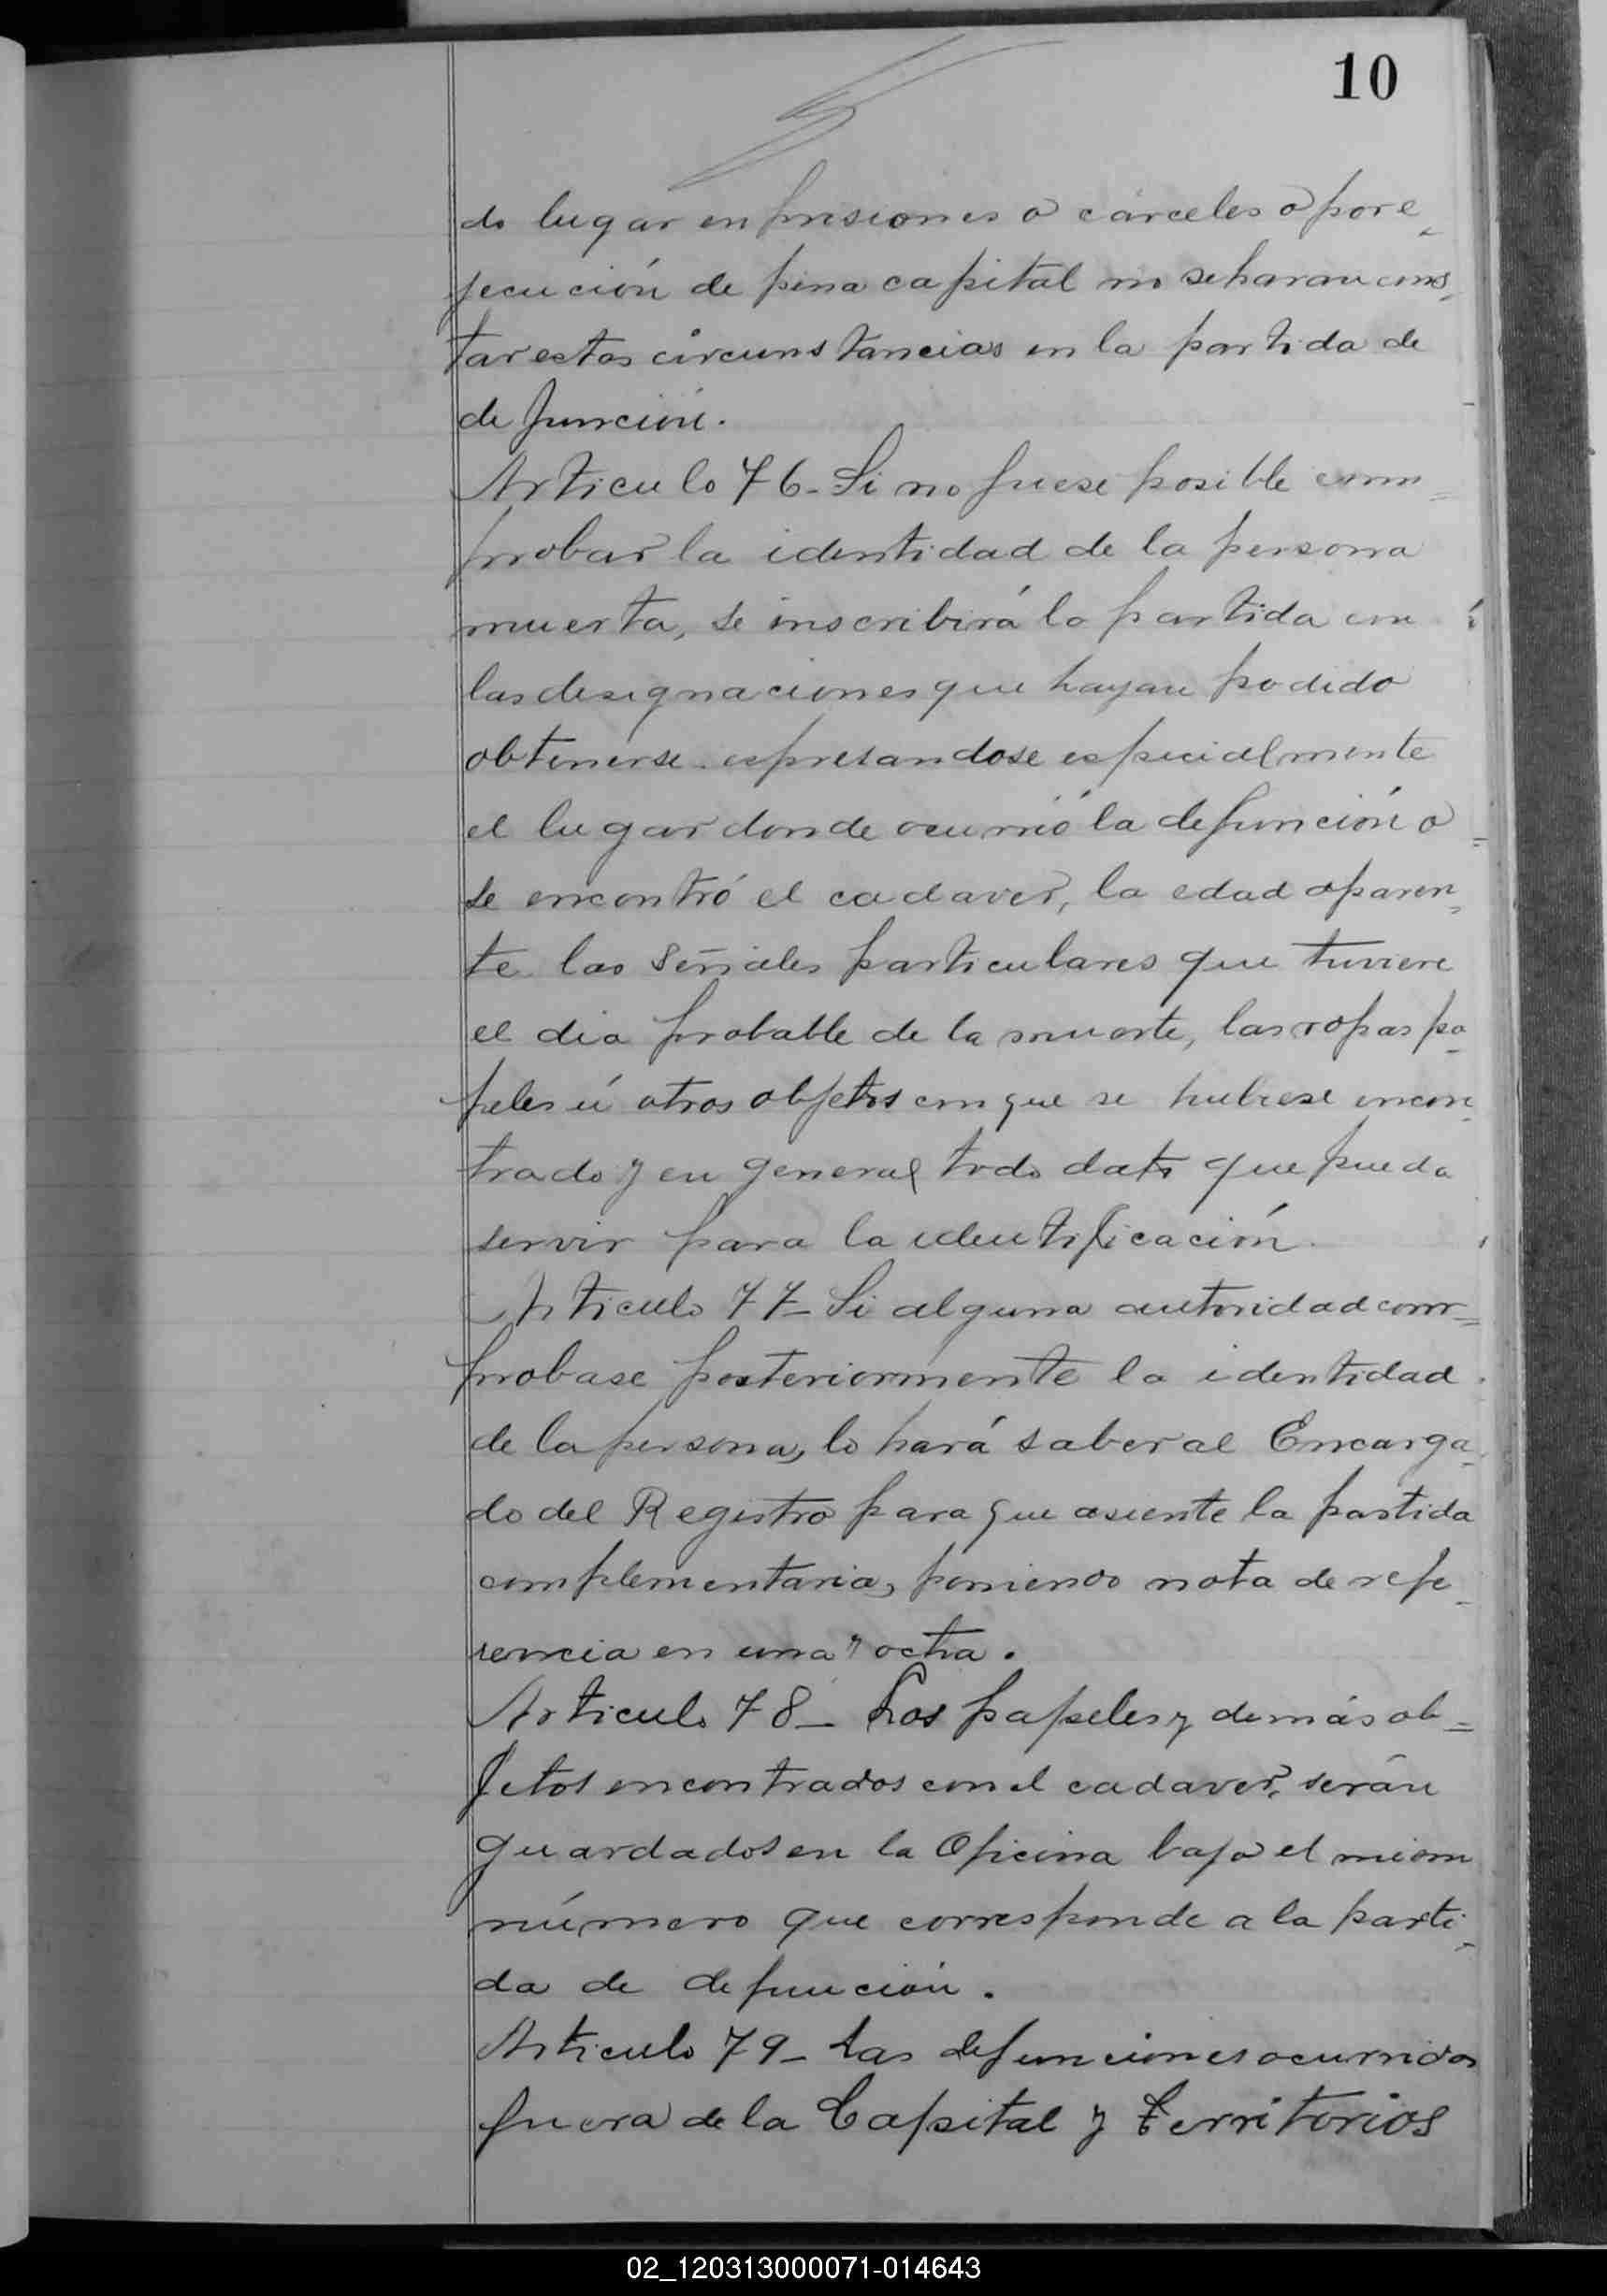 10
do lugar en prisiones o cárceles o por e
jecución de pena capital no se haran cons
tar estas circunstancias en la partida de
de función.
Articulo 76 - Si no fuese posible com=
probar la identidad de la persona
muerta, se inscribirá la partida con
las designaciones que hayan podido
obtenerse espresandose especialmente
el lugar donde ocurrió la defunción o
se encontró el cadaver, la edad aparen
te las señales particulares que tuviere
el dia probable de la muerte, las ropas pa
peles ú otros objetos con que se hubiese encon
trado y en general todo dato que pueda
servir para la identificación.
Articulo 77 - Si alguna autoridad com=
probase posteriormente la identidad
de la persona, lo hará saber al Encarga
do del Registro para que asiente la partida
complementaria, poniendo nota de refe
rencia en una y octra.
Articulo 78 - Los papeles y demás ob=
jetos encontrados con el cadaver, serán
guardados en la Oficina bajo el mismo
número que corresponde a la parti
da de defunción.
Articulo 79 - Las defunciones ocurridas
fuera de la Capital y Territorios
02_120313000071-014643